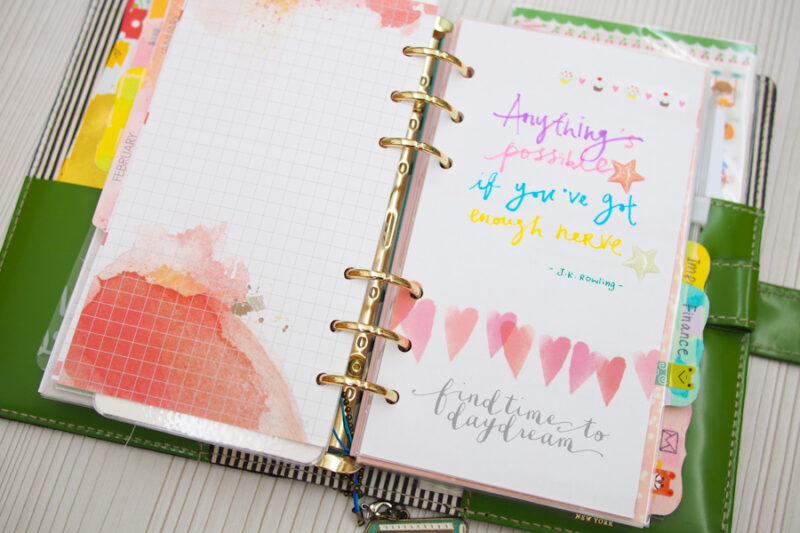 FEBRUARY
Anything's
possible
if you've got
enough nerve
- J.K. Rowling -
find time to
daydream
Finance
NEW YORK